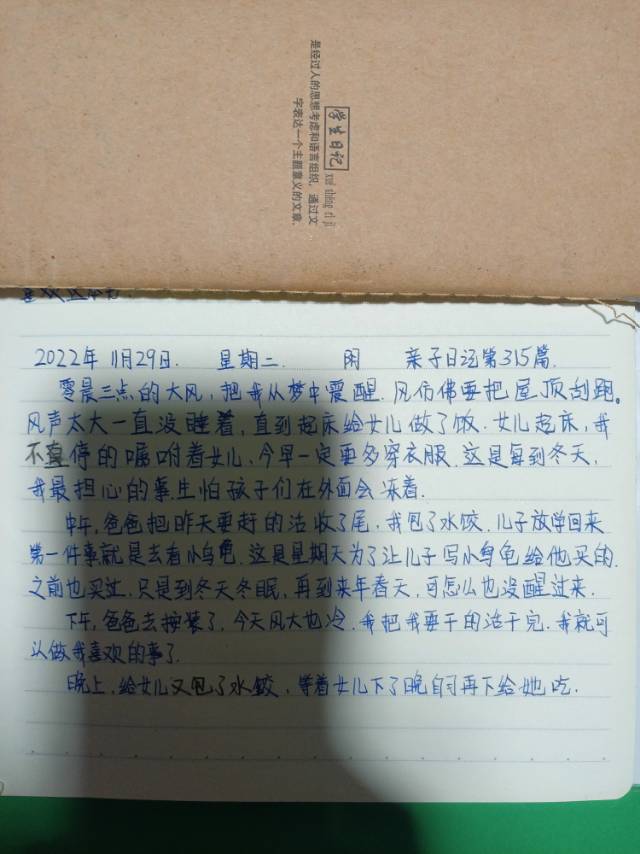 学生日记
xué shēng rì jì
是经过人的思想考虑和语言组织，通过文
字表达一个主题意义的文章.
2022年 11月29日. 星期二. 阴 亲子日记第315篇.
零晨三点的大风，把我从梦中震醒. 风仿佛要把屋顶刮跑。
风声太大一直没睡着，直到起床给女儿做了饭. 女儿起床，我
不停的嘱咐着女儿，今早一定要多穿衣服. 这是每到冬天，
我最担心的事生怕孩子们在外面会冻着.
中午，爸爸把昨天要赶的活收了尾. 我包了水饺. 儿子放学回来
第一件事就是去看小乌龟. 这是星期天为了让儿子写小乌龟给他买的.
之前也买过. 只是到冬天冬眠，再到来年春天，可怎么也没醒过来.
下午，爸爸去按装了. 今天风大也冷. 我把我要干的活干完. 我就可
以做我喜欢的事了.
晚上，给女儿又包了水饺，等着女儿下了晚自习再下给她吃.